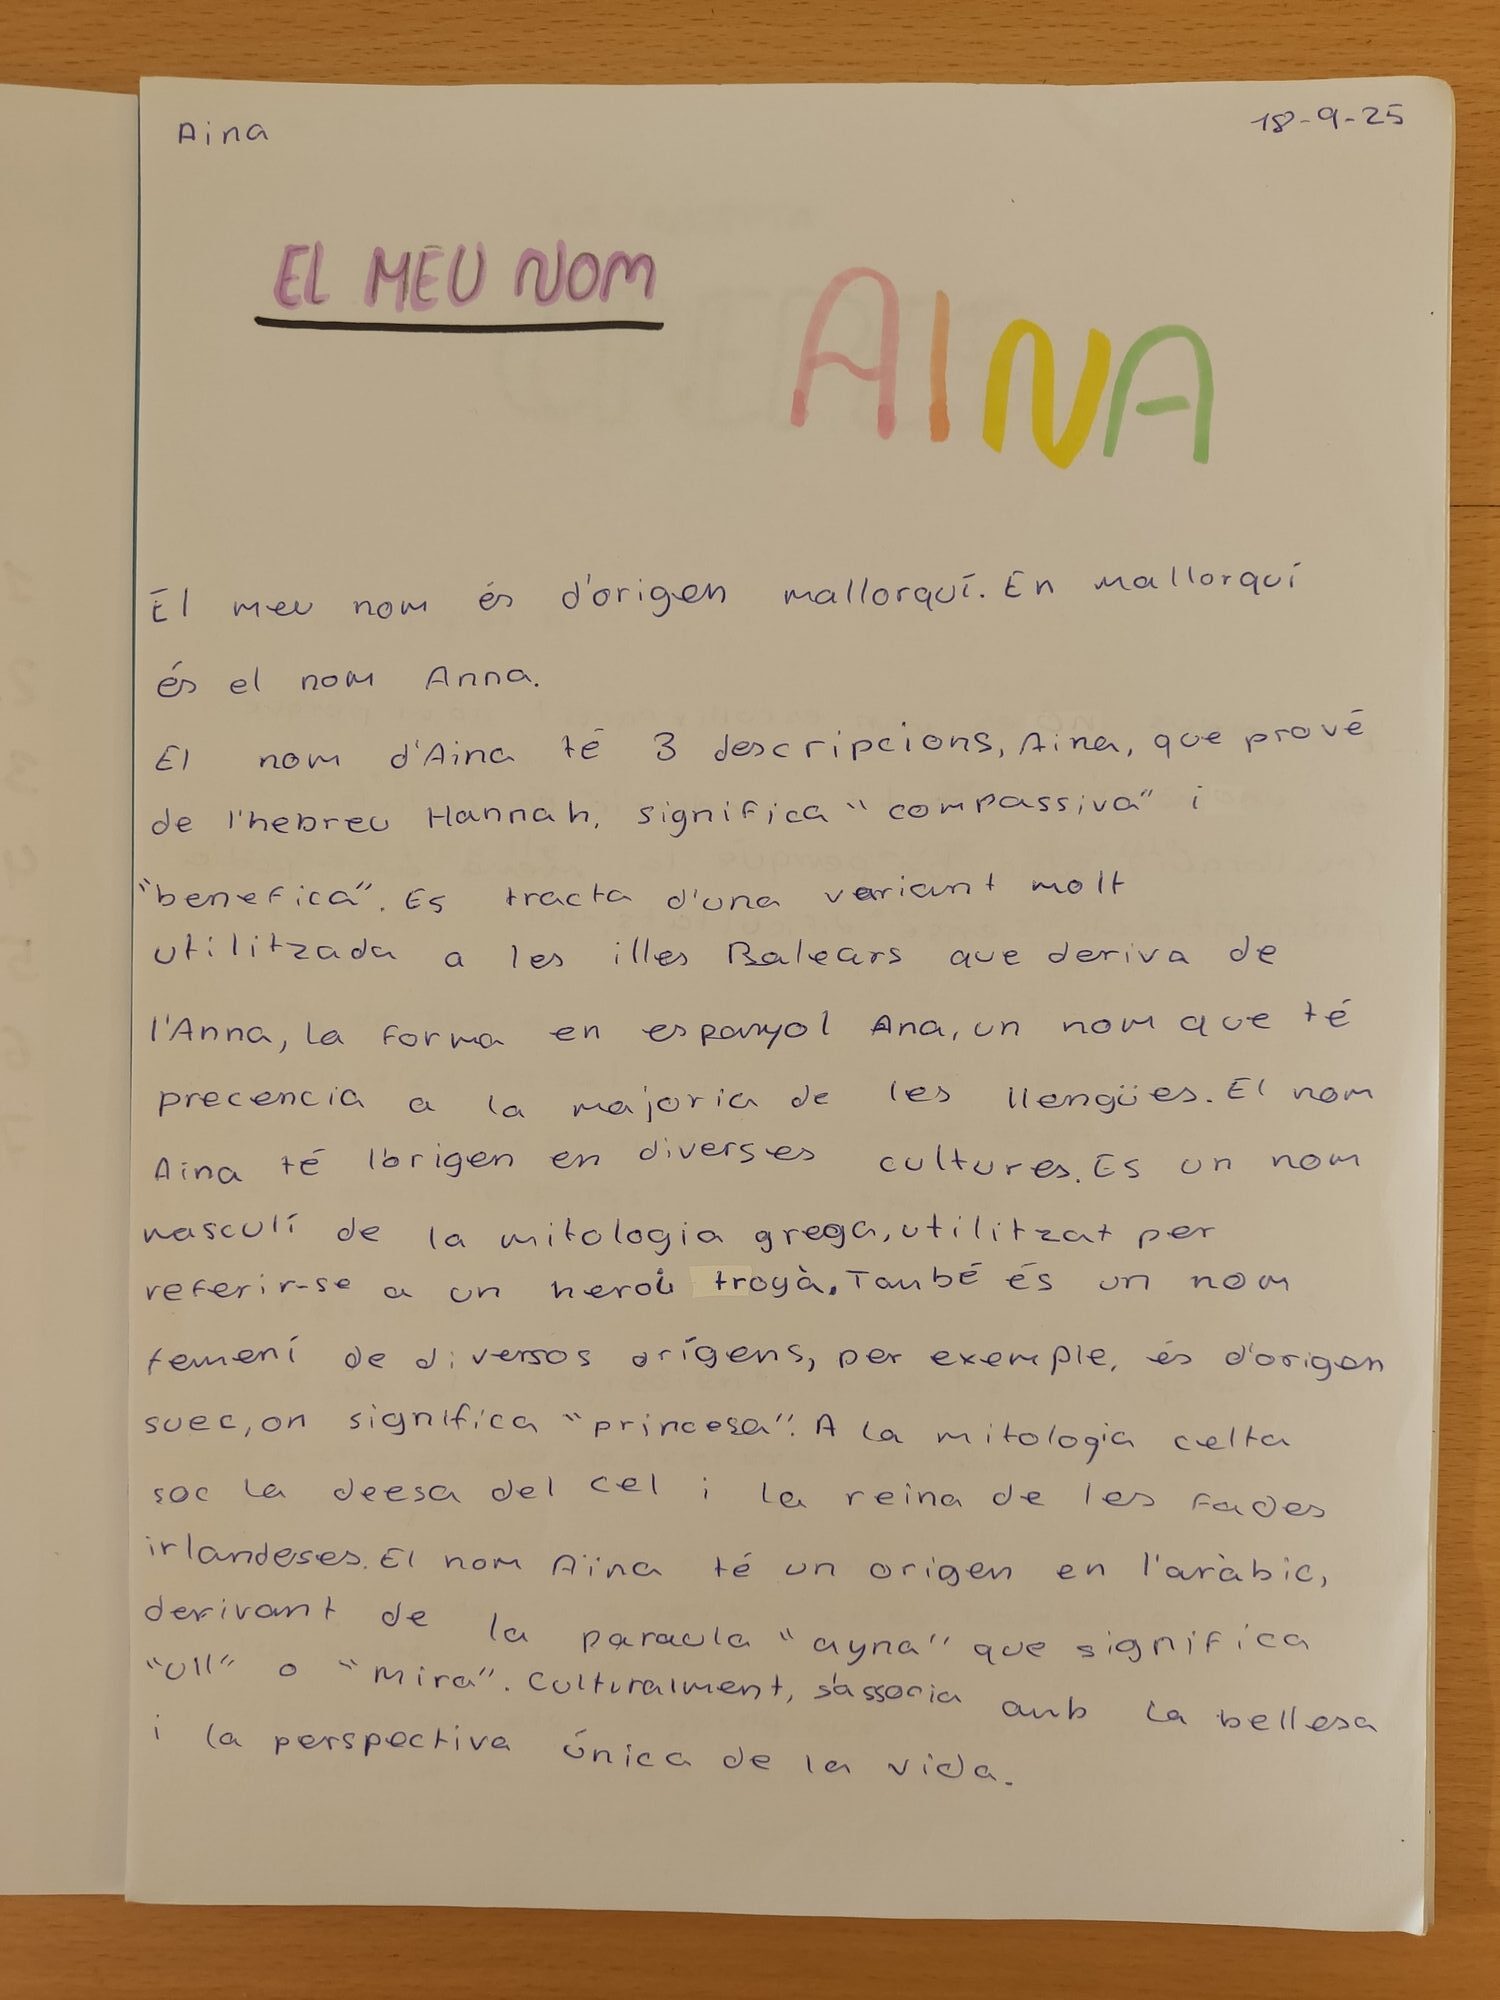 Aina
18-9-25
EL MEU NOM
AINA
El meu nom és d'origen mallorquí. En mallorquí
és el nom Anna.
El nom d'Aina té 3 descripcions, Aina, que prové
de l'hebreu Hannah, significa "compassiva" i
"benefica". Es tracta d'una variant molt
utilitzada a les illes Balears que deriva de
l'Anna, la forma en espanyol Ana, un nom que té
precencia a la majoria de les llengües. El nom
Aina té l'origen en diverses cultures. Es un nom
masculí de la mitologia grega, utilitzat per
referir-se a un heroi troyà. També és un nom
femení de diversos orígens, per exemple, és d'origen
suec, on significa "princesa". A la mitologia celta
soc la deesa del cel i la reina de les fades
irlandeses. El nom Aïna té un origen en l'aràbic,
derivant de la paraula "ayna" que significa
"Ull" o "Mira". Culturalment, s'associa amb la bellesa
i la perspectiva única de la vida.